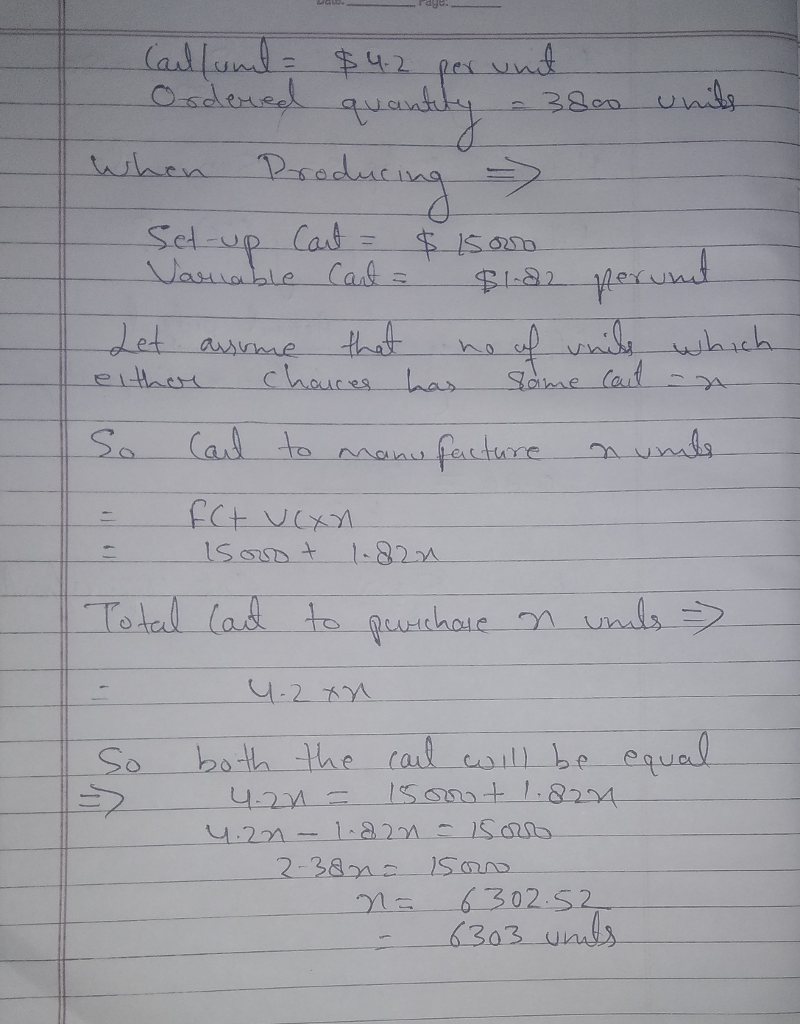 Date: Page:
Cost/unit = $4.2 per unit
Ordered quantity = 3800 units
When Producing =>
Set-up Cost = $ 15000
Variable Cost = $1.82 per unit
Let assume that no of units which
either choices has same cost = n
So Cost to manufacture n units
= FC+ VC×n
= 15000 + 1.82n
Total Cost to purchase n units =>
= 4.2 ×n
So both the cost will be equal
=> 4.2n = 15000 + 1.82n
4.2n - 1.82n = 15000
2.38n = 15000
n = 6302.52
= 6303 units